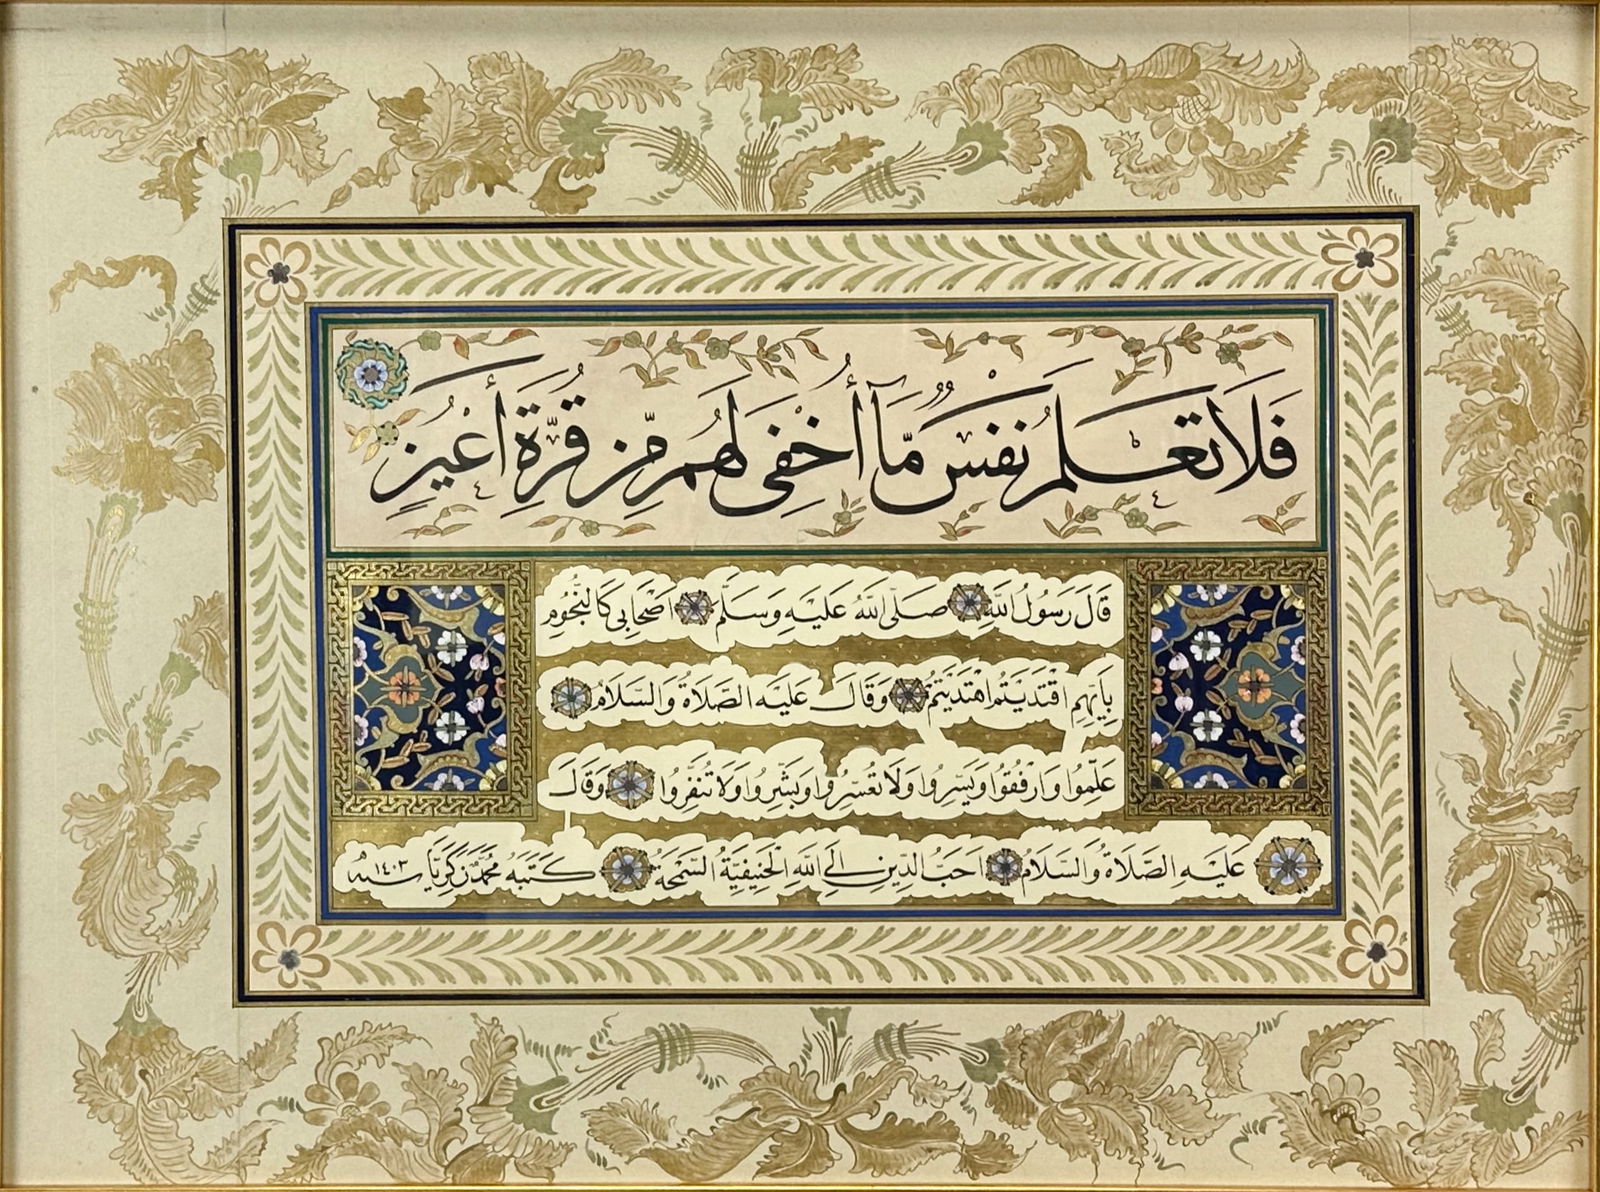 فَلَا تَعْلَمُ نَفْسٌ مَّآ أُخْفِىَ لَهُم مِّن قُرَّةِ أَعْيُنٍ
قَالَ رَسُولُ اللّٰهِ صَلَّى اللّٰهُ عَلَيْهِ وَسَلَّمَ اَصْحَابِى كَالنُّجُومِ
بِاَيِّهِمِ اقْتَدَيْتُمُ اهْتَدَيْتُمْ وَقَالَ عَلَيْهِ الصَّلَاةُ وَالسَّلَامُ
عَلِّمُوا وَارْفُقُوا وَيَسِّرُوا وَلَا تُعَسِّرُوا وَبَشِّرُوا وَلَا تُنَفِّرُوا وَقَالَ
عَلَيْهِ الصَّلَاةُ وَالسَّلَامُ اَحَبُّ الدِّينِ اِلَى اللّٰهِ الْحَنِيفِيَّةُ السَّمْحَةُ كَتَبَهُ مُحَمَّدْ زَكَرِيَّا سنه ١٤٠٣